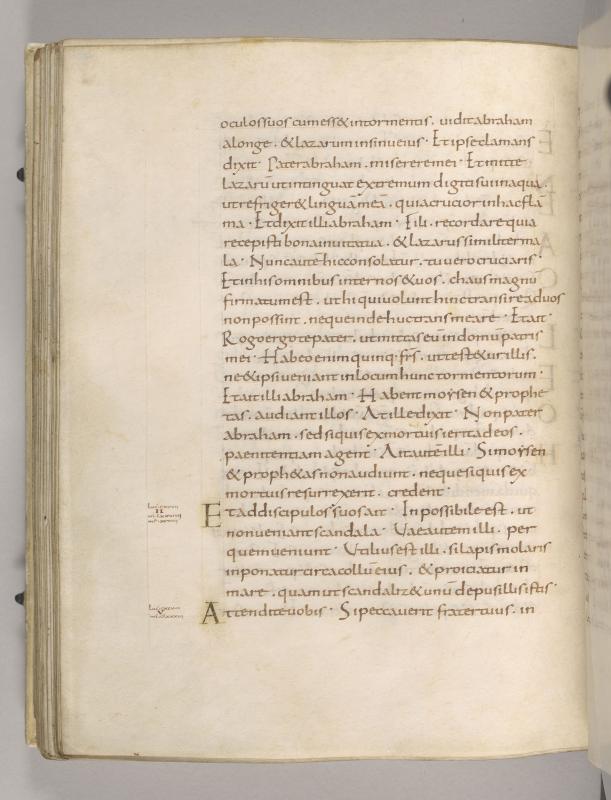 oculos suos cum ess& in tormentis. uidit abraham
alonge. & lazarum in sinu eius· Et ipse clamans
dixit· Pater abraham. miserere mei· Et mitte
lazarū ut intinguat extremum digiti sui in aqua.
ut refriger& linguā meā. quia crucior in hac flā
ma· Et dixit illi abraham· Fili. recordare quia
recepisti bona in uita tua. & lazarus similiter ma
la· Nunc autē hic consolatur. tu uero cruciaris·
Et in his omnibus inter nos & uos. chaus magnū
firmatum est. ut hi qui uolunt hinc transire ad uos
non possint. neque inde huc transmeare· Et ait·
Rogo ergo te pater. ut mittas eū in domū patris
mei· Habeo enim quinq· frs̄. ut test&ur illis.
ne & ipsi ueniant in locum hunc tormentorum·
Et ait illi abraham· Habent moysen & prophe
tas. audiant illos· At ille dixit· Non pater
abraham. sed si quis ex mortuis ierit ad eos.
paenitentiam agent· Ait autē illi· Si moysen
& proph&as non audiunt. neque si quis ex
mortuis resurrexerit. credent·
Et ad discipulos suos ait· Inpossibile est. ut
non ueniant scandala· Uae autem illi. per
quem ueniunt· Utilius est illi. si lapis molaris
inponatur circa collū eius. & proiciatur in
mare. quam ut scandaliz& unū de pusillis istis·
Attendite uobis· Si peccauerit frater tuus. in